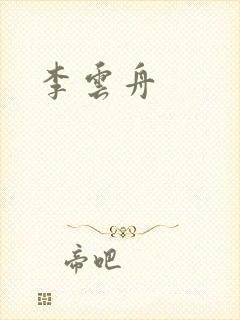 李雲舟
帝吧